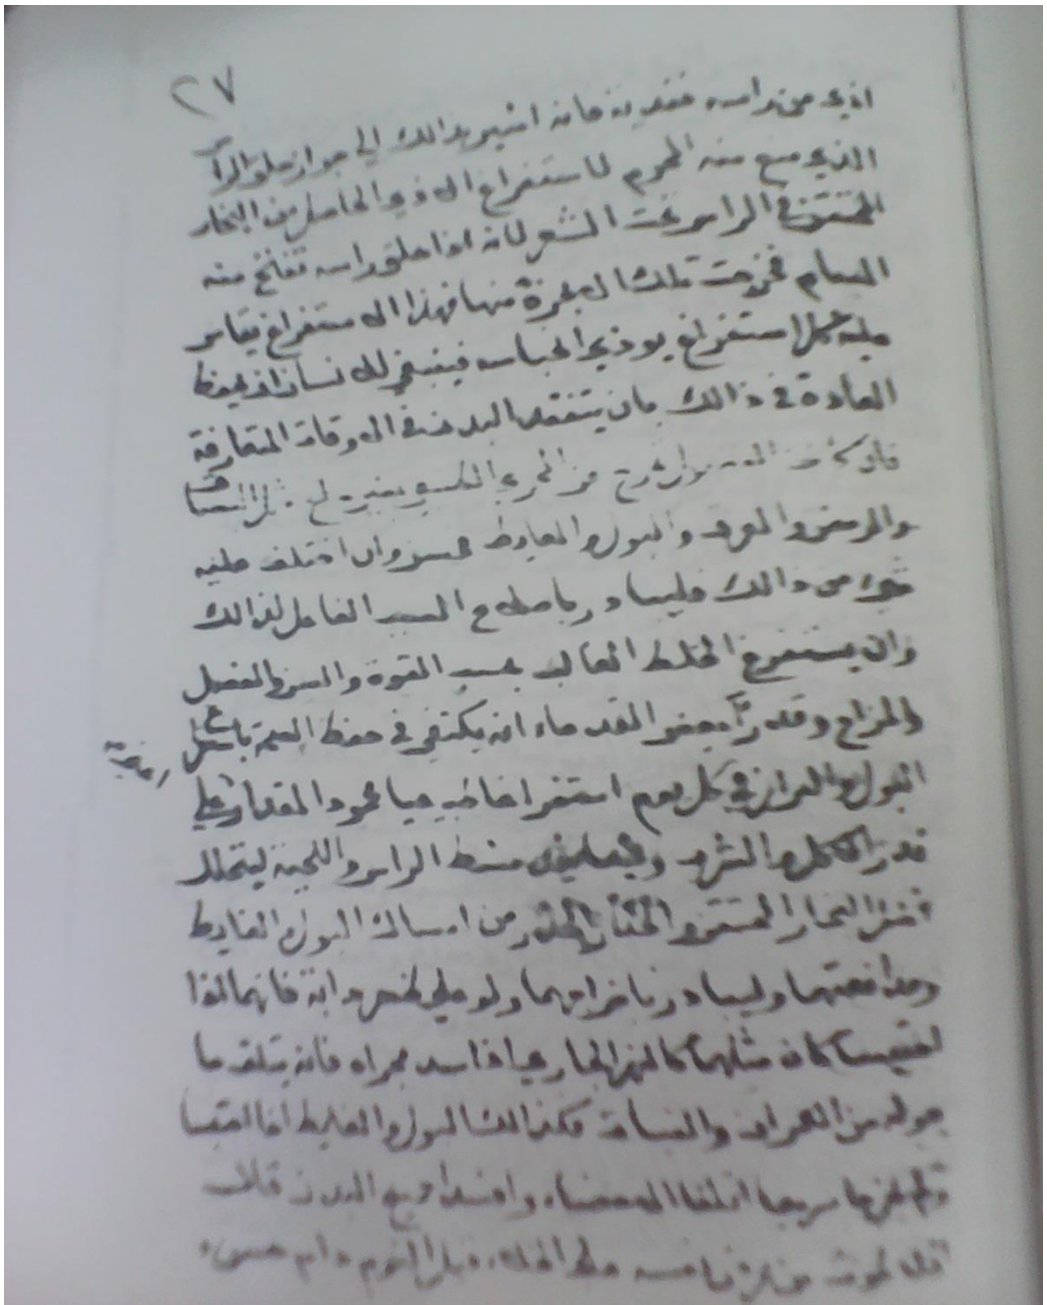 ٢٧
اذي من راسه ففدية فانه اشير بذالك الي جواز حلق الراس
الذي منع منه المحرم لاستفراغ الاذي الحاصل من البخار
المحتقن في الراس تحت الشعر لانه اذا حلق راسه تفتح منه
المسام فخرجت تلك الابخرة منها فهذا الاستفراغ يقاس
عليه كل استفراغ يوذي احتباسه فينبغي للانسان ان يحفظ
العادة في ذالك بان يتفقد البدن في الاوقات المتعارفة
فان كانت
والبول والغايط وان اختلف عليه
شي من ذالك فليبادر باصلاح السبب الفاعل لذالك
وان يستفرغ الخلط الغالب بحسب القوة والسن والفصل
والمزاج وقد رأ بعض القدماء انه يكتفي في حفظ الصحة
البول والبراز في كل يوم استفراغا طبيعيا المقدار علي
قدر الاكل والشرب مشط الراس واللحية ليتحلل
البخار المحتقن الحذر من امساك البول والغايط
ومدافعتهما وليبادر باخراجهما ولو علي ظهر دابة فانهما اذا
احتبسا كان مثلهما كالنهر الجاري اذا سد مجراه فانه يتلف ما
حوله من العمران والنبات فكذالك البول والغايط اذا احتبسا
ولم يخرجا سريعا اتلفا الاعضاء وافسدا جميع البدن قلت
علي الخلاء قبل النوم دام